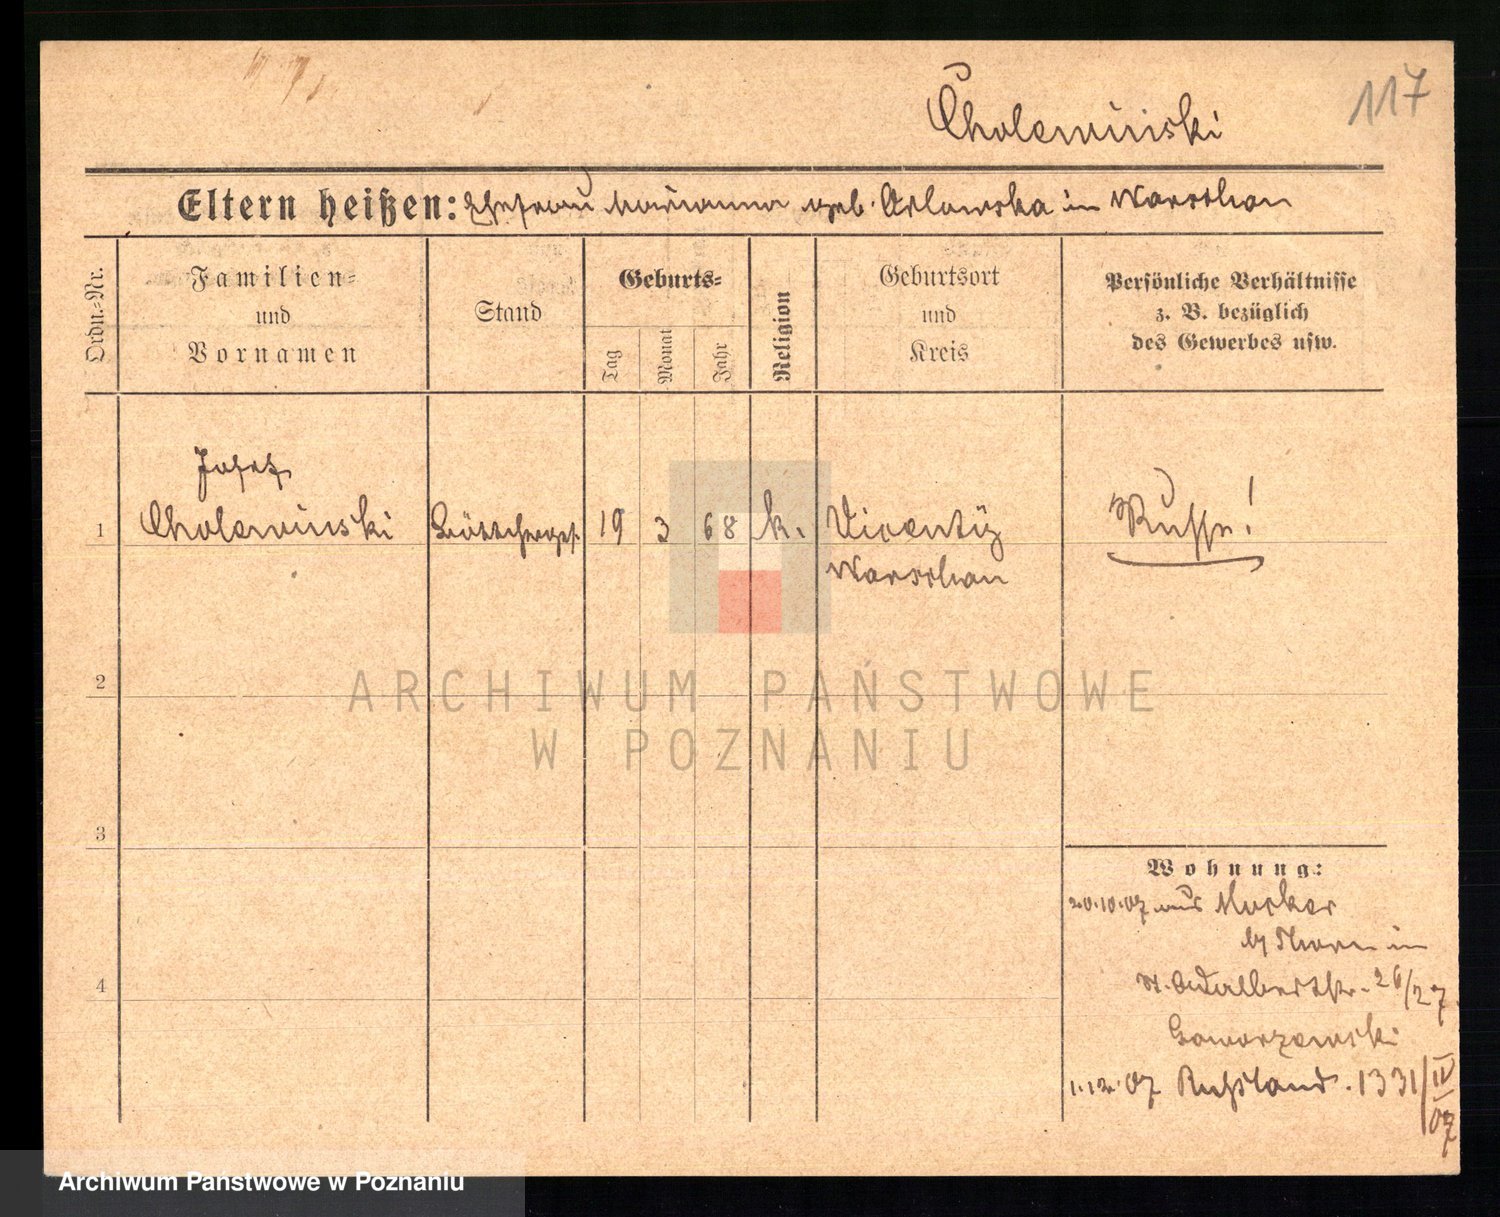 Cholewiński
117
Eltern heißen: Ehefrau Marianna geb. Orlowska in Warschau
Ordn.-Nr.
Familien-
und
Vornamen
Stand
Geburts-
Tag
Monat
Jahr
Religion
Geburtsort
und
Kreis
Persönliche Verhältnisse
z. B. bezüglich
des Gewerbes usw.
Josef
1 Cholewinski Böttcherges. 19 3 68 k. Russe!
Warschau
2
ARCHIWUM PAŃSTWOWE
W POZNANIU
3
Wohnung:
20.10.07 aus Mocker
by Thorn in
St. Adalbertstr. 26/27.
Goworzewski
4
1.12.07 Russland. 1331/IV/07
Archiwum Państwowe w Poznaniu